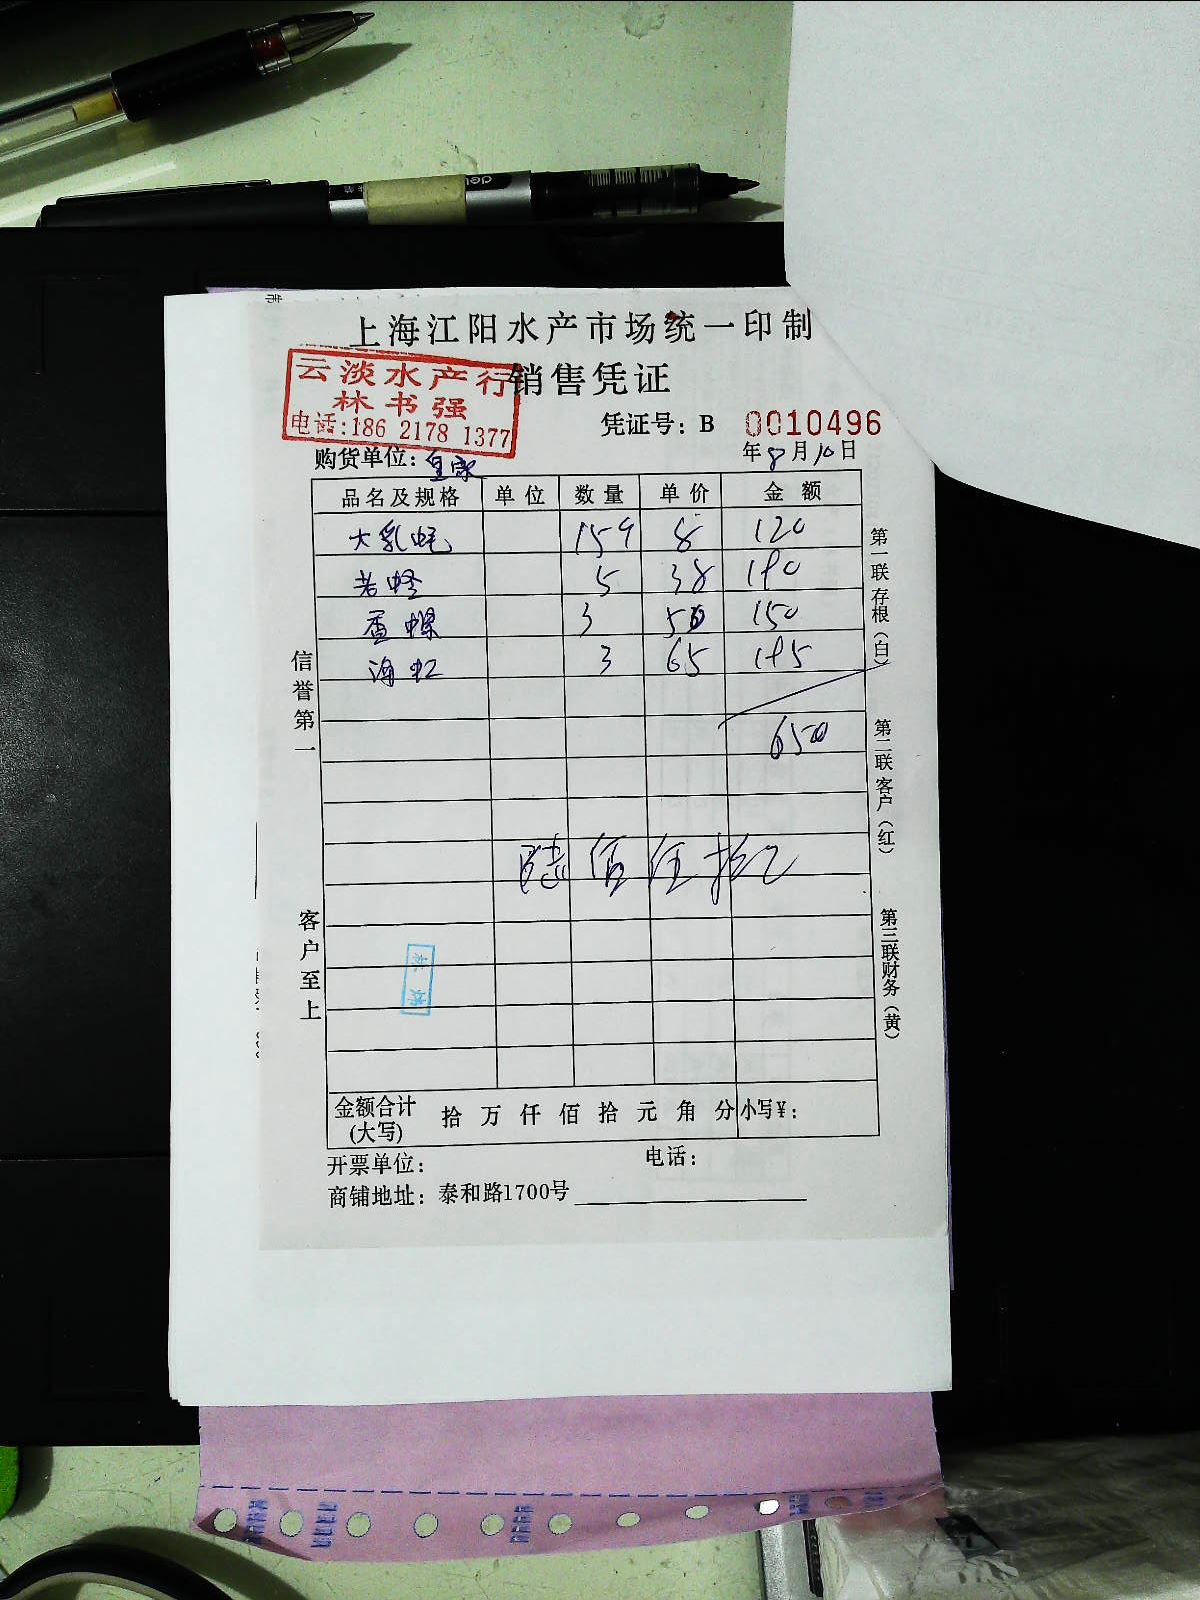 上海江阳水产市场统一印制
云淡水产行
林书强
电话:186 2178 1377
销售凭证
凭证号: B 0010496
购货单位: 皇家
年8月10日
品名及规格 单位 数量 单价 金额
大乳蚝 8 120
老蛏 5 38 190
香螺 3 50 150
海虹 3 65 195
650
陆佰伍拾
信誉第一
客户至上
第一联存根(白)
第二联客户(红)
第三联财务(黄)
金额合计(大写) 拾万仟佰拾元角分 小写¥:
开票单位: 电话:
商铺地址: 泰和路1700号
deli